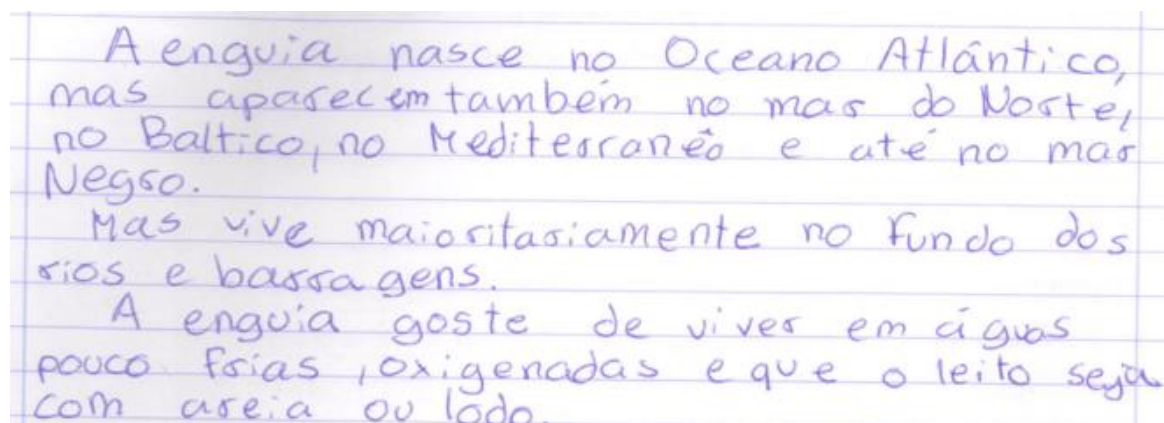 A enguia nasce no Oceano Atlântico,
mas aparecem também no mar do Norte,
no Baltico, no Mediterranêo e até no mar
Negro.
Mas vive maioritariamente no fundo dos
rios e barragens.
A enguia goste de viver em águas
pouco frias, oxigenadas e que o leito seja
com areia ou lodo.